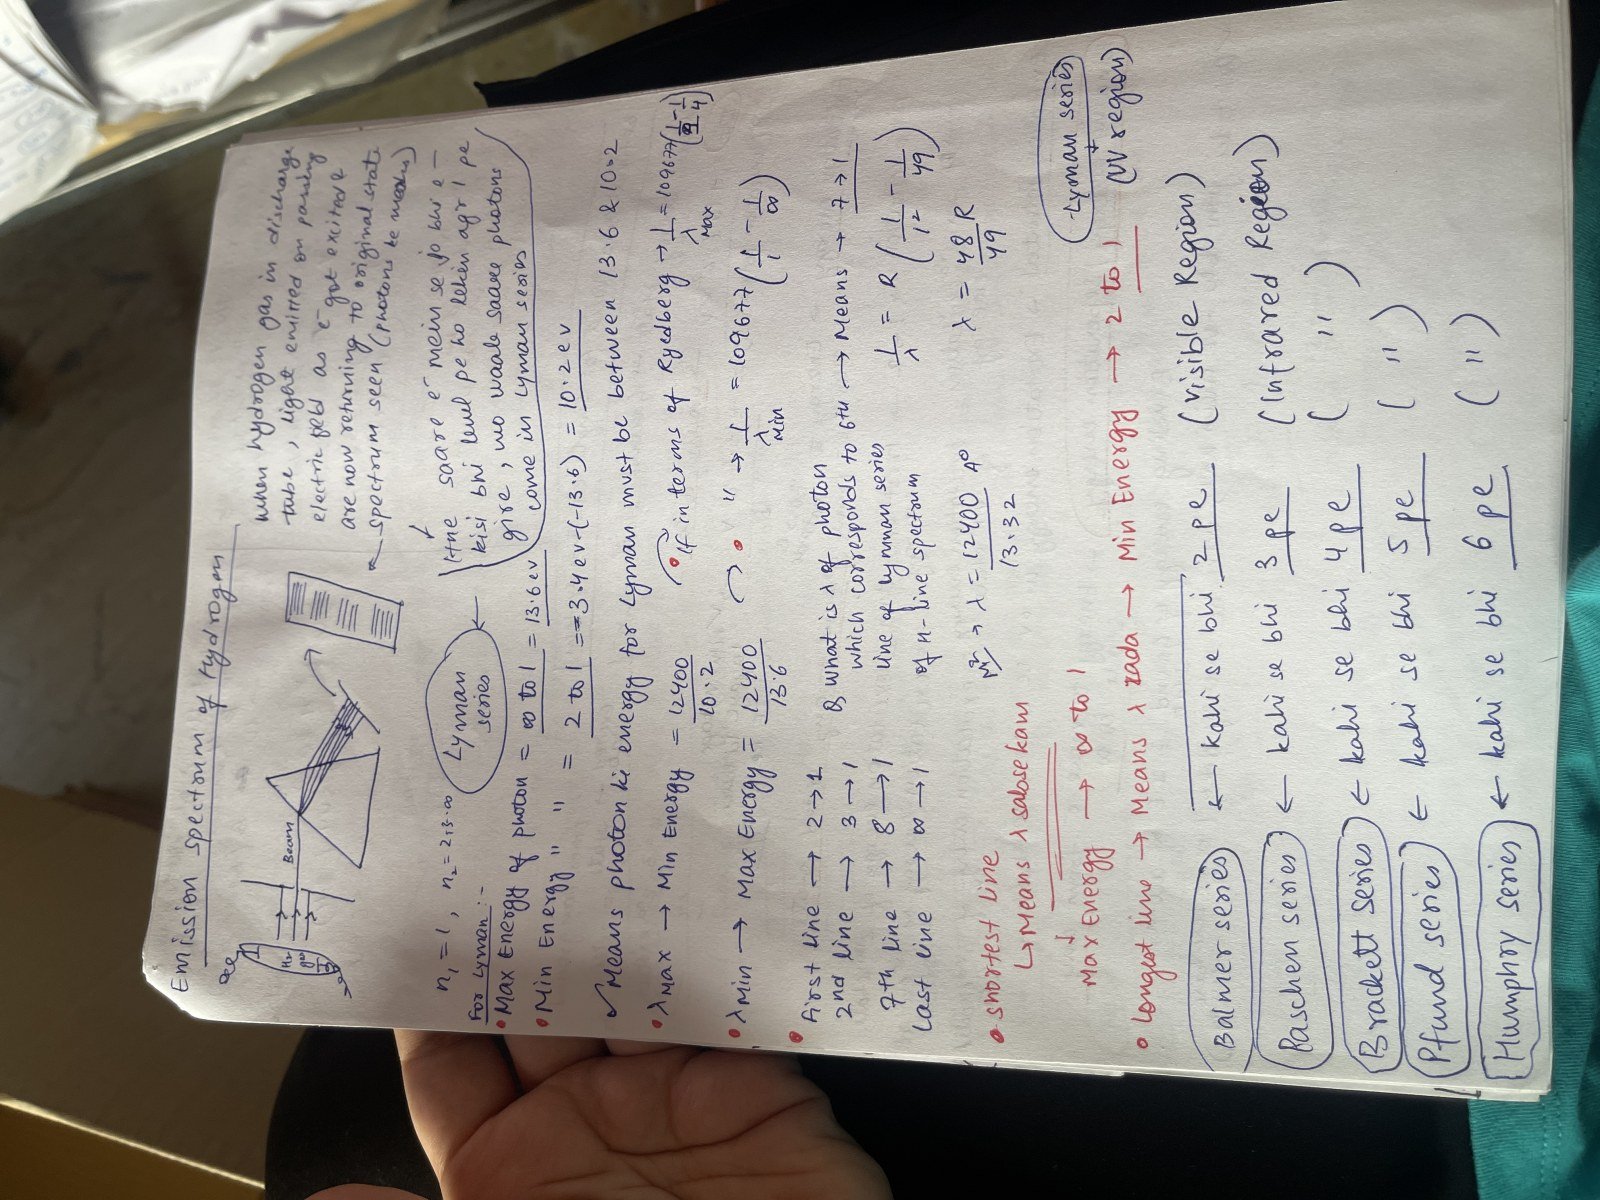 Emission spectrum of Hydrogen
H₂
gas
Beam
when hydrogen gas in discharge
tube, light emitted on passing
electric field as e⁻ got excited &
are now returning to original state
← spectrum seen (photons ke means)
n₁ = 1, n₂ = 2,3...∞
Lyman
series
Itne saare e⁻ mein se jo bhi e⁻
kisi bhi level pe ho lekin agr 1 pe
gire, wo waale saare photons
come in Lyman series
For Lyman:-
• Max Energy of photon = ∞ to 1 = 13.6 ev
• Min Energy " " = 2 to 1 = -3.4 ev-(-13.6) = 10.2 ev
✓ Means photon ki energy for Lyman must be between 13.6 & 10.2
• λ Max → Min Energy = 12400/10.2
• If in terms of Ryedberg → 1/λ Max = 109677 (1/1 - 1/4)
• λ Min → Max Energy = 12400/13.6
• " → 1/λ Min = 109677 (1/1 - 1/∞)
• First line → 2→1
2nd line → 3→1
7th line → 8→1
Last line → ∞→1
Q What is λ of photon
which corresponds to 6th → Means → 7→1
line of lyman series
of H-line spectrum
1/λ = R (1/1² - 1/49)
λ = 48/49 R
→ λ = 12400/13.32 A°
• Shortest Line
↳ Means λ sabse kam
↓
Max Energy → ∞ to 1
• Longest line → Means λ zada → Min Energy → 2 to 1
Lyman series
↓
(UV region)
Balmer series ← kahi se bhi 2 pe (Visible Region)
Paschen series ← kahi se bhi 3 pe (Infrared Region)
Brackett series ← kahi se bhi 4 pe ( " )
Pfund series ← kahi se bhi 5 pe ( " )
Humphry series ← kahi se bhi 6 pe ( " )